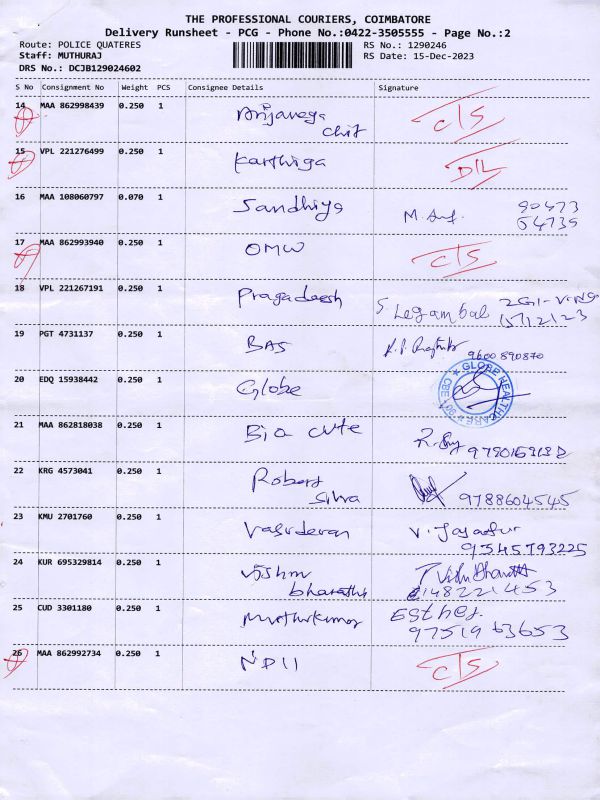 THE PROFESSIONAL COURIERS, COIMBATORE
Delivery Runsheet - PCG - Phone No.:0422-3505555 - Page No.:2
Route: POLICE QUATERES RS No.: 1290246
Staff: MUTHURAJ RS Date: 15-Dec-2023
DRS No.: DCJB129024602
S No Consignment No Weight PCS Consignee Details Signature
14 MAA 862998439 0.250 1 C/S
Chit
15 VPL 221276499 0.250 1 Karthiga D/L
16 MAA 108060797 0.070 1 Sandhiya M. 90473
54735
17 MAA 862993940 0.250 1 OMW C/S
18 VPL 221267191 0.250 1 Pragadeesh S Legambal
15/12/23
19 PGT 4731137 0.250 1 BAS
9600 890870
20 EDQ 15938442 0.250 1 Globe GLOBE HEALTHCARE CBE
21 MAA 862818038 0.250 1 Bio cute
22 KRG 4573041 0.250 1 Robert
Silva 9788604545
23 KMU 2701760 0.250 1 Vasudevan V.
9345793225
24 KUR 695329814 0.250 1
bharathi
25 CUD 3301180 0.250 1 Muthukumar Esther
9751963653
26 MAA 862992734 0.250 1 C/S